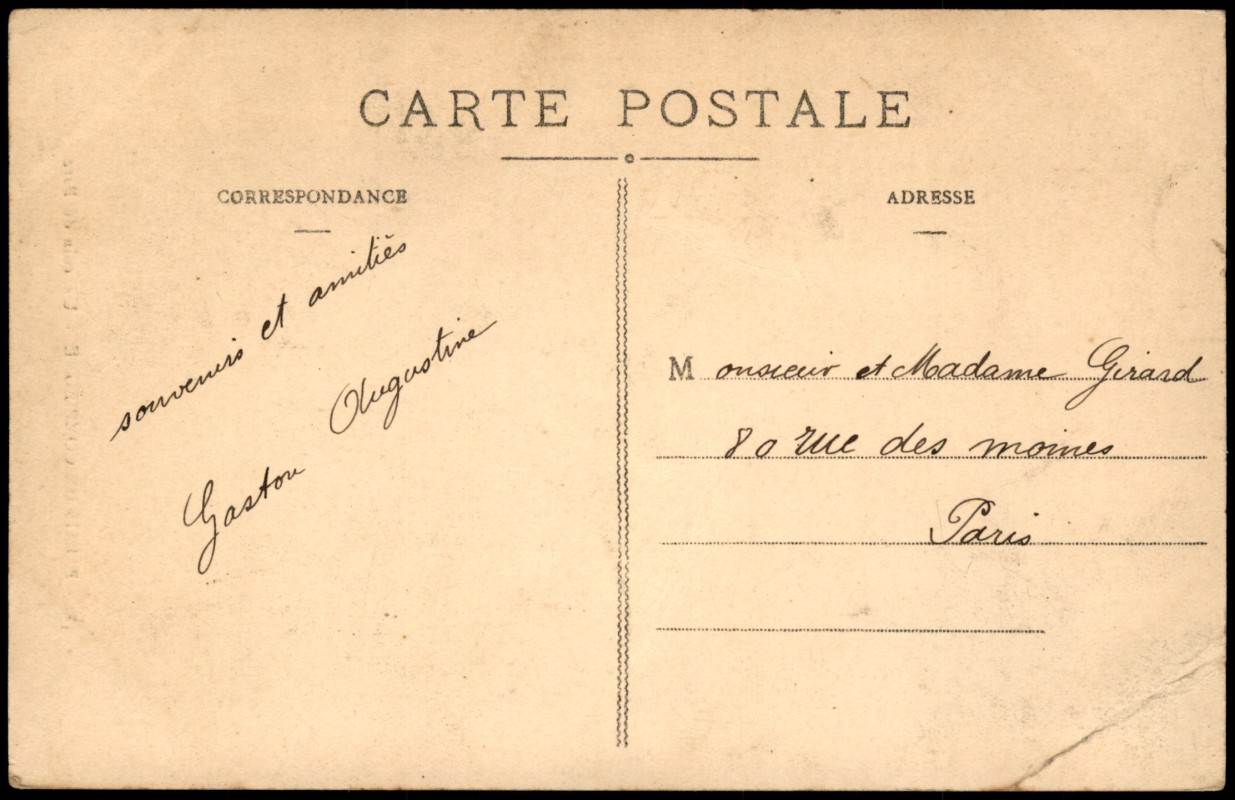 CARTE POSTALE
CORRESPONDANCE
souvenirs et amitiés
Gaston Augustine
ADRESSE
Monsieur et Madame Girard
80 rue des moines
Paris